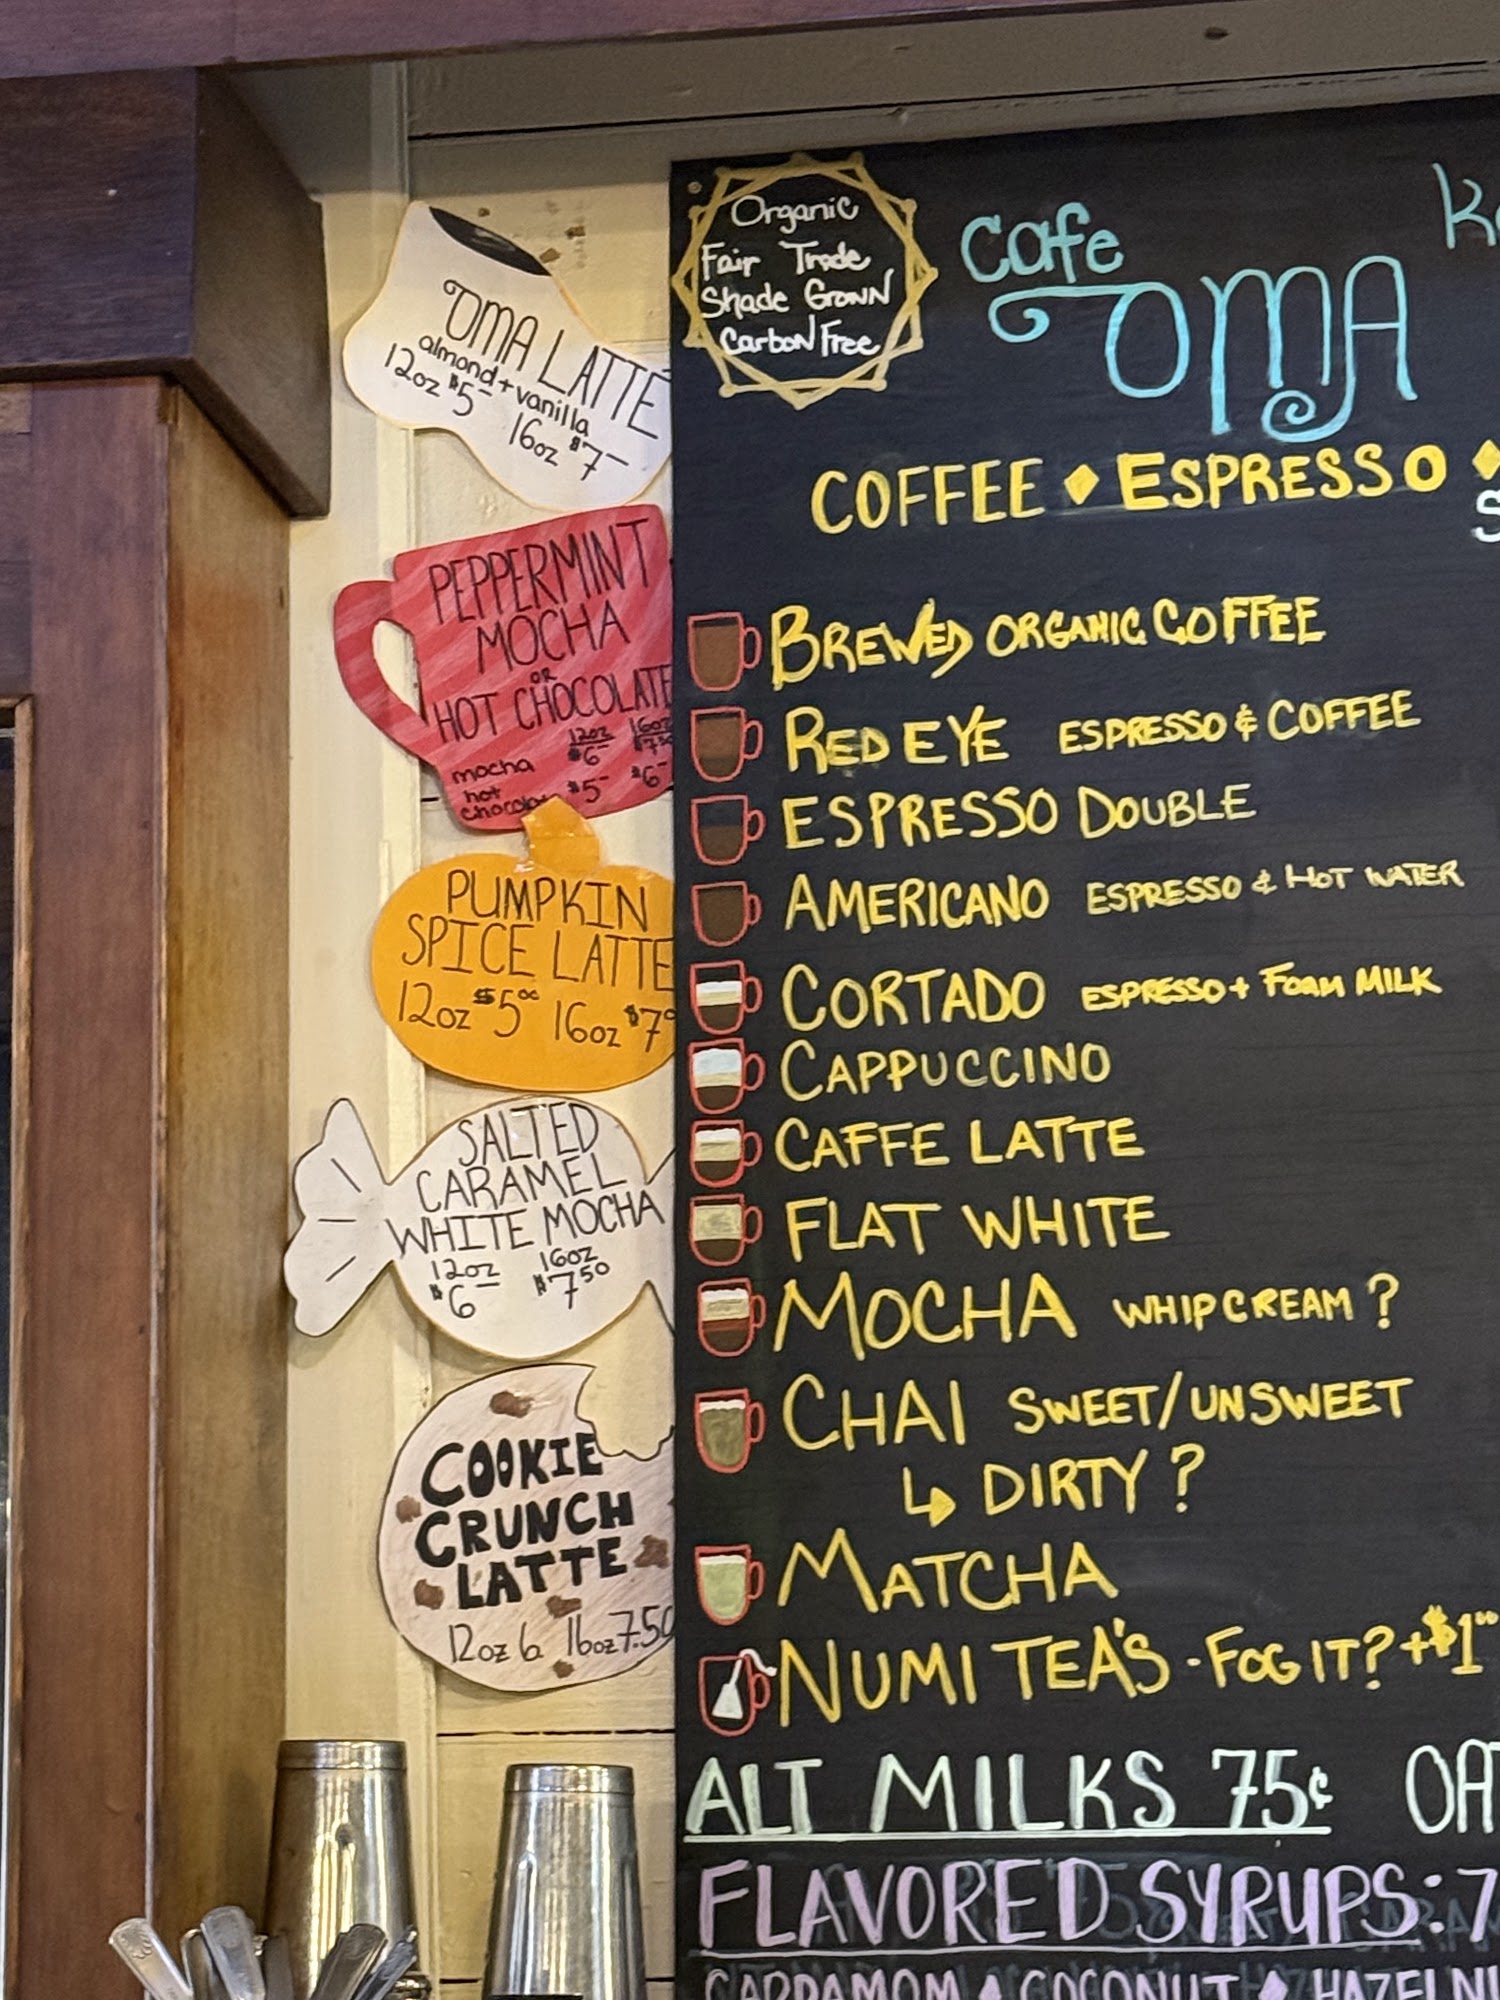 OMA LATTE
almond + vanilla
12oz $5- 16oz $7-
PEPPERMINT
MOCHA
OR
HOT CHOCOLATE
12oz 16oz
mocha $6- $7.50
hot
chocolate $5- $6-
PUMPKIN
SPICE LATTE
12oz $5.00 16oz $7
SALTED
CARAMEL
WHITE MOCHA
12oz 16oz
$6- $7.50
COOKIE
CRUNCH
LATTE
12oz 6 16oz 7.50
Organic
Fair Trade
Shade Grown
Carbon Free
Cafe
OMA
COFFEE ♦ ESPRESSO ♦
BREWED ORGANIC COFFEE
RED EYE ESPRESSO & COFFEE
ESPRESSO DOUBLE
AMERICANO ESPRESSO & HOT WATER
CORTADO ESPRESSO + FOAM MILK
CAPPUCCINO
CAFFE LATTE
FLAT WHITE
MOCHA WHIPCREAM ?
CHAI SWEET/UNSWEET
↳ DIRTY ?
MATCHA
NUMI TEA'S - FOG IT? +$1.00
ALT MILKS 75¢ OAT
FLAVORED SYRUPS: 7
CARDAMOM ♦ COCONUT ♦ HAZELNU